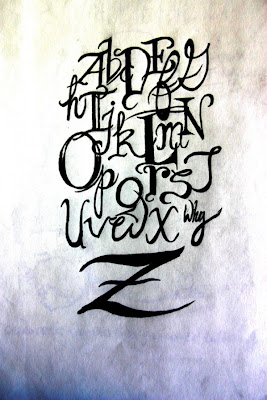 AbcDEfG
hIjkLmN
OpqrsT
UvwX Why
Z